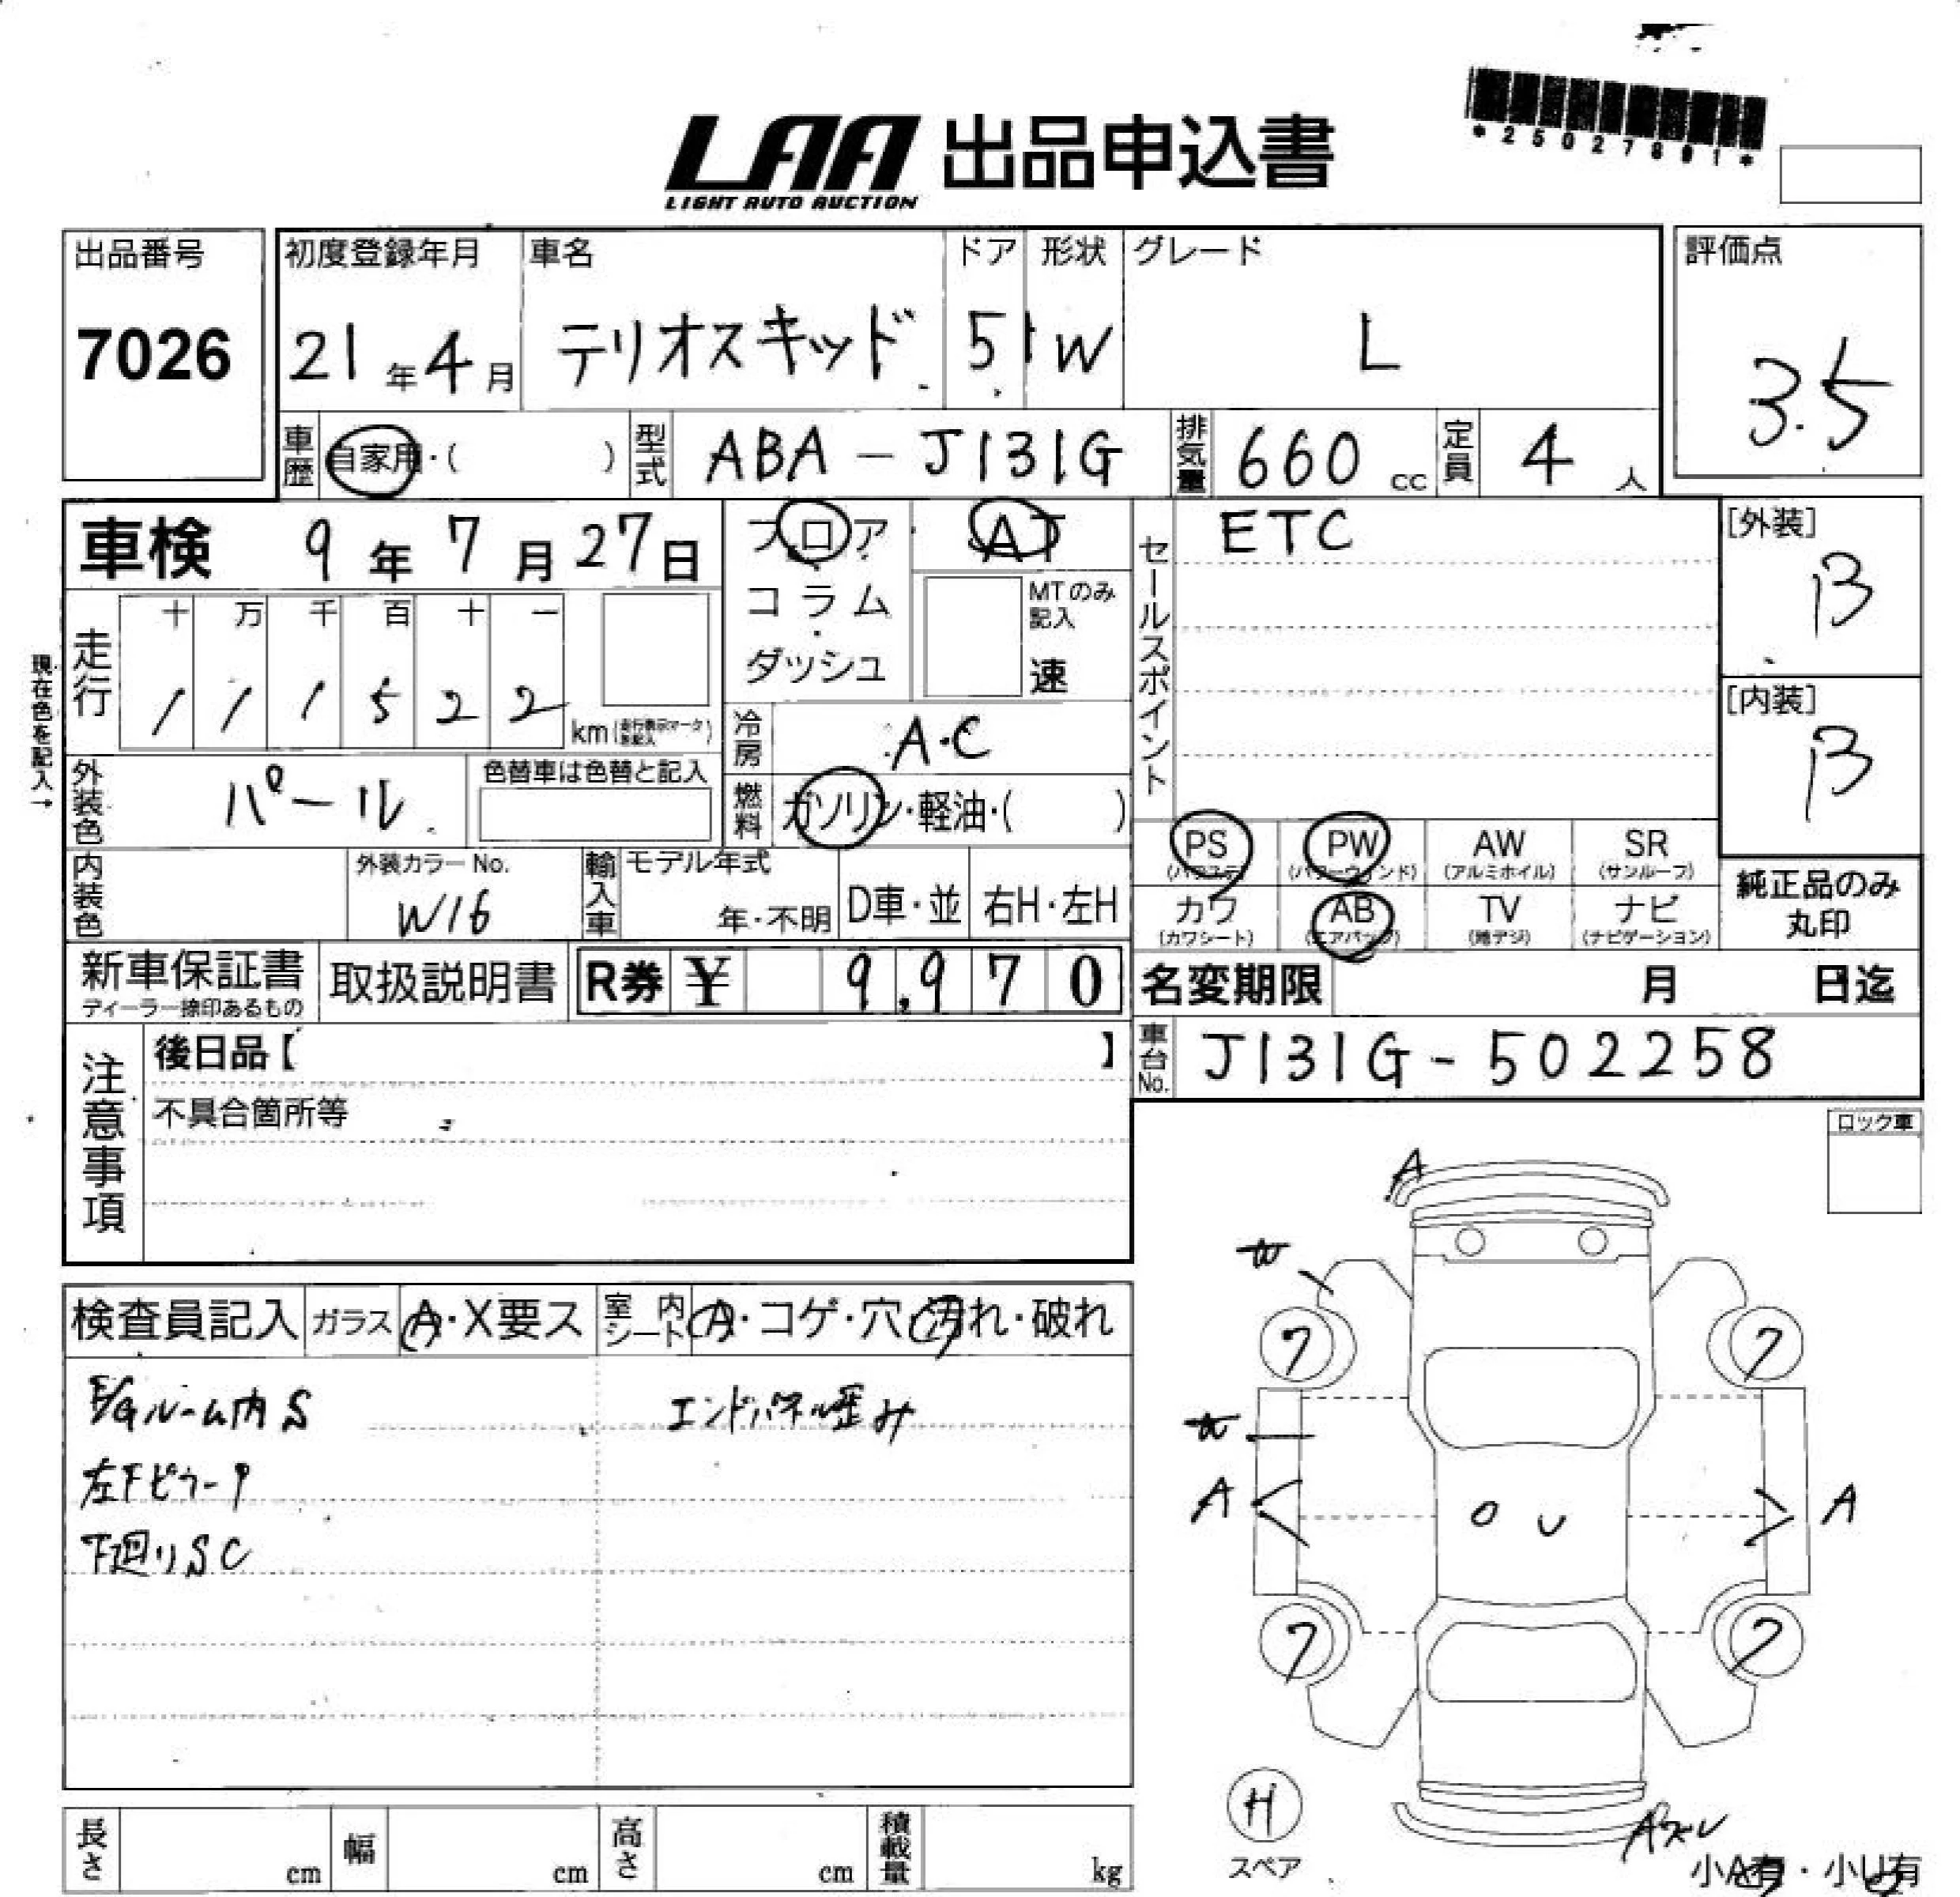 *25027891*
LAA 出品申込書
LIGHT AUTO AUCTION
出品番号
7026
初度登録年月
21年4月
車名
テリオスキッド
ドア
5
形状
W
グレード
L
評価点
3.5
車歴
自家用・( )
型式
ABA-J131G
排気量
660cc
定員
4人
車検 9年7月27日
フロア
コラム
ダッシュ
AT
MTのみ記入
速
セールスポイント
ETC
[外装]
B
[内装]
B
現在色を記入→
走行
十 万 千 百 十 一
1 1 1 5 2 2
km
冷房
A・C
燃料
ガソリン・軽油・( )
外装色
パール
色替車は色替と記入
内装色
外装カラーNo.
W16
輸入車
モデル年式
年・不明
D車・並
右H・左H
PS
(パワステ)
PW
(パワーウィンド)
AW
(アルミホイル)
SR
(サンルーフ)
カワ
(カワシート)
AB
(エアバッグ)
TV
(地デジ)
ナビ
(ナビゲーション)
純正品のみ
丸印
新車保証書
ディーラー捺印あるもの
取扱説明書
R券 ¥ 9,970
名変期限 月 日迄
車台No.
J131G-502258
注意事項
後日品【 】
不具合箇所等
ロック車
検査員記入
ガラス
A・X要ス
室内シート
A・コゲ・穴・汚れ・破れ
E/Gルーム内S
エンドパネル歪み
左FピラーP
下廻りSC
A
W
7
7
W
A
A
U
7
7
H
スペア
小A有・小U有
長さ
cm
幅
cm
高さ
cm
積載量
kg